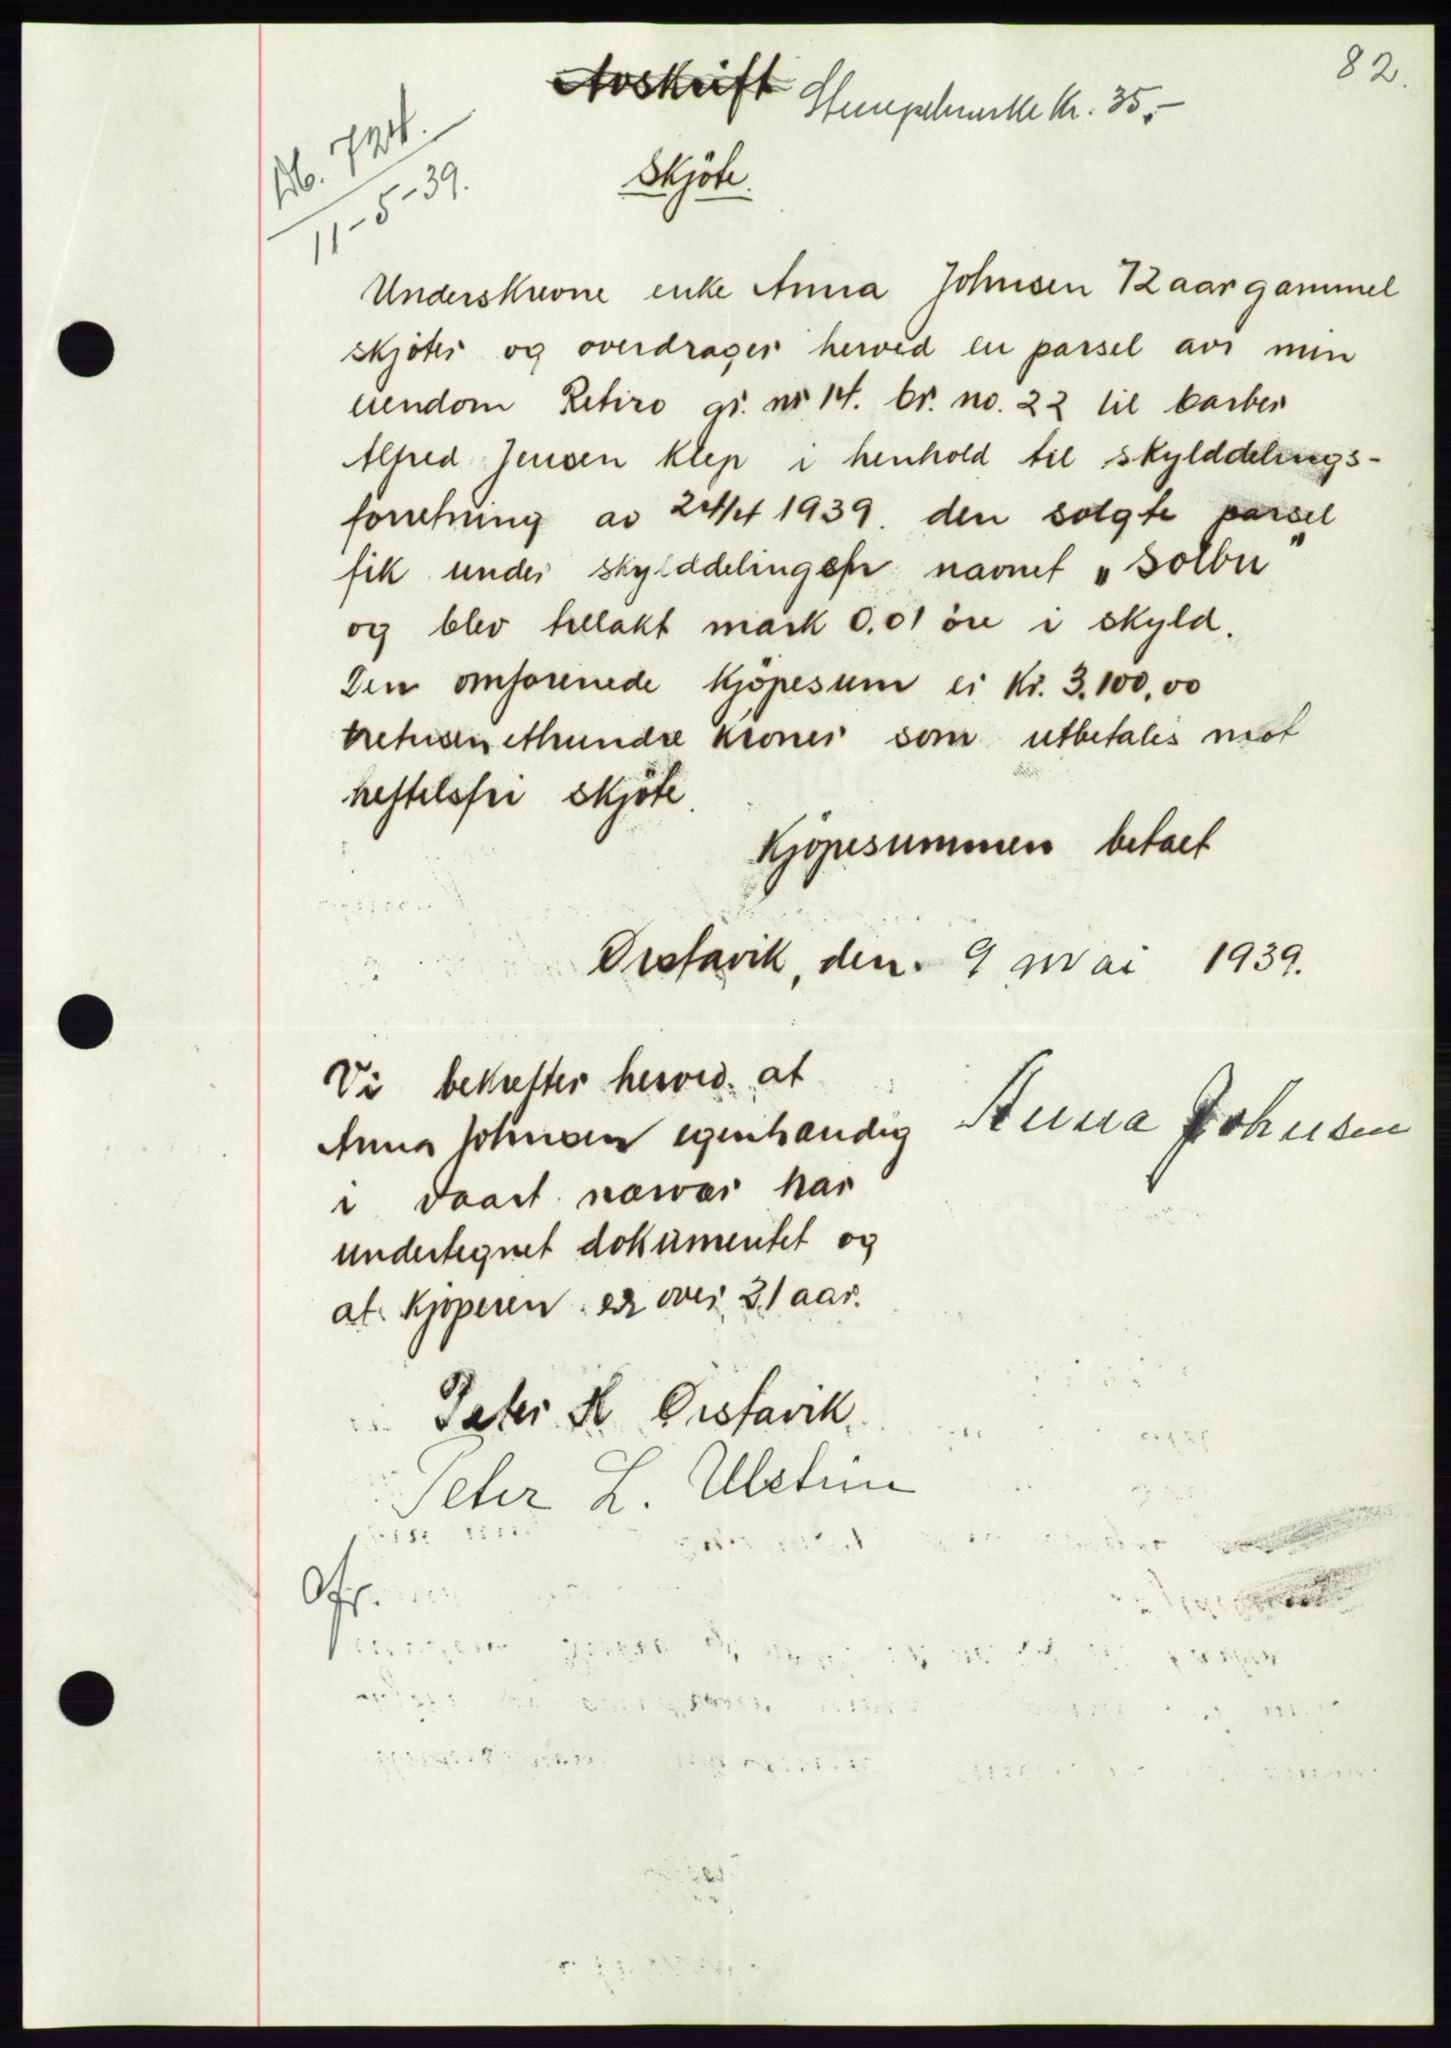 82.
Avskrift Stempelmerke kr. 35,-
Db. 724.
11-5-39.
Skjöte.
Underskrevne enke Anna Johnsen 72 aar gammel
skjøter og overdrager herved en parsel av min
eiendom Retiro gr. nr 14. br. no. 22 til barber
Alfred Jensen Klep i henhold til skylddelings-
forretning av 24/4 1939. den solgte parsel
fik under skylddelingsfr navnet „Solbu"
og blev tillakt mark 0.01 öre i skyld.
Den omforenede kjöpesum er Kr. 3.100,00
tretusenethundre kroner som utbetales mot
heftelsfri skjöte.
Kjöpesummen betalt
Ørstavik, den. 9 mai 1939.
Vi bekrefter herved. at
Anna Johnsen egenhændig
i vaart nærvær har
undertegnet dokumentet og
at kjöperen er over 21 aar.
Anna Johnsen
Peter H Ørstavik.
Peter L. Ulstein